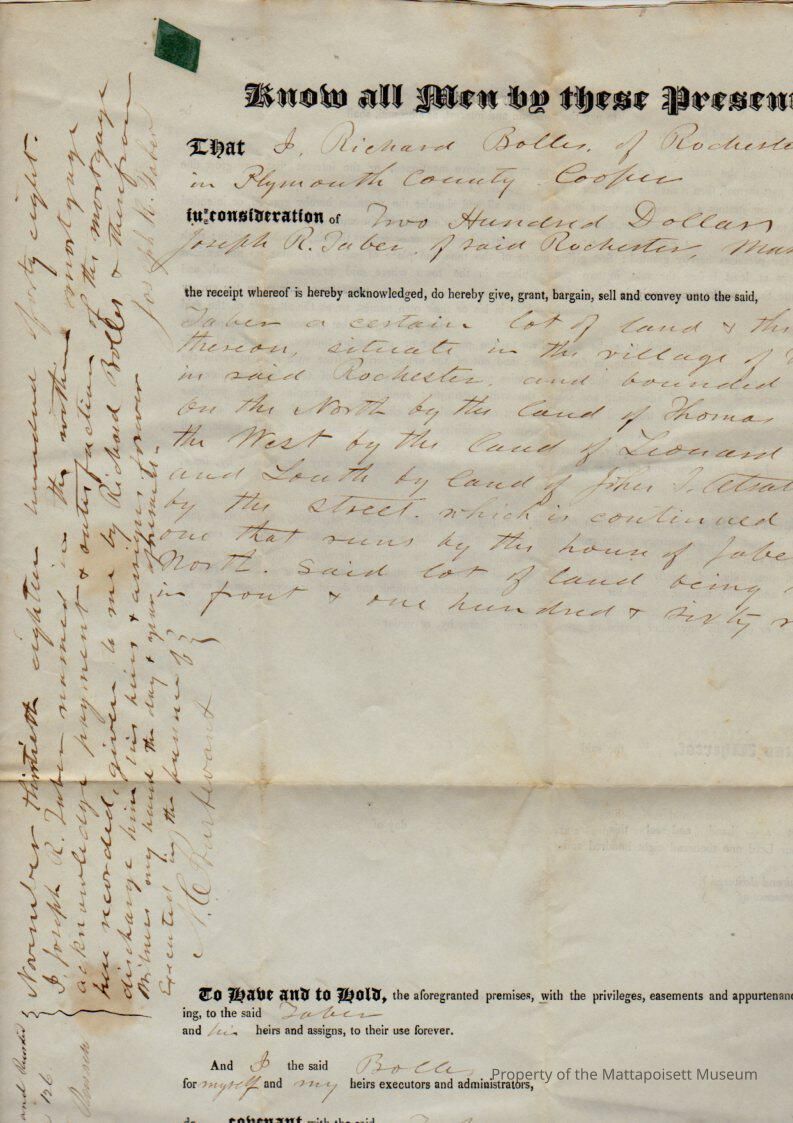 Know all Men by these Presen
That I, Richard Bolles, of Rocheste
in Plymouth County Cooper
in consideration of Two Hundred Dollars
Joseph R. Taber, of said Rochester, Mar
the receipt whereof is hereby acknowledged, do hereby give, grant, bargain, sell and convey unto the said,
Taber a certain lot of land & the
thereon, situate in the village of
in said Rochester, and bounded
On the North by the land of Thomas
the West by the land of Leonard
and South by land of John S. Atsat
by the street which is continued
one that runs by the house of Jabe
North. Said lot of land being
in front & one hundred & sixty r
To Have and to Hold, the aforegranted premises, with the privileges, easements and appurtenanc
ing, to the said Taber
and his heirs and assigns, to their use forever.
And I the said Bolles
for myself and my heirs executors and administrators,
do covenant with the said
November thirtieth eighteen hundred & forty eight.
I, Joseph R. Taber named in the within mortgage
acknowledge payment & satisfaction of the mortgage
here recorded, given to me by Richard Bolles & therefrom
discharge him, his heirs & assigns forever
Witness my hand the day & year aforesaid.
Joseph R. Taber
Executed in the presence of
Property of the Mattapoisett Museum